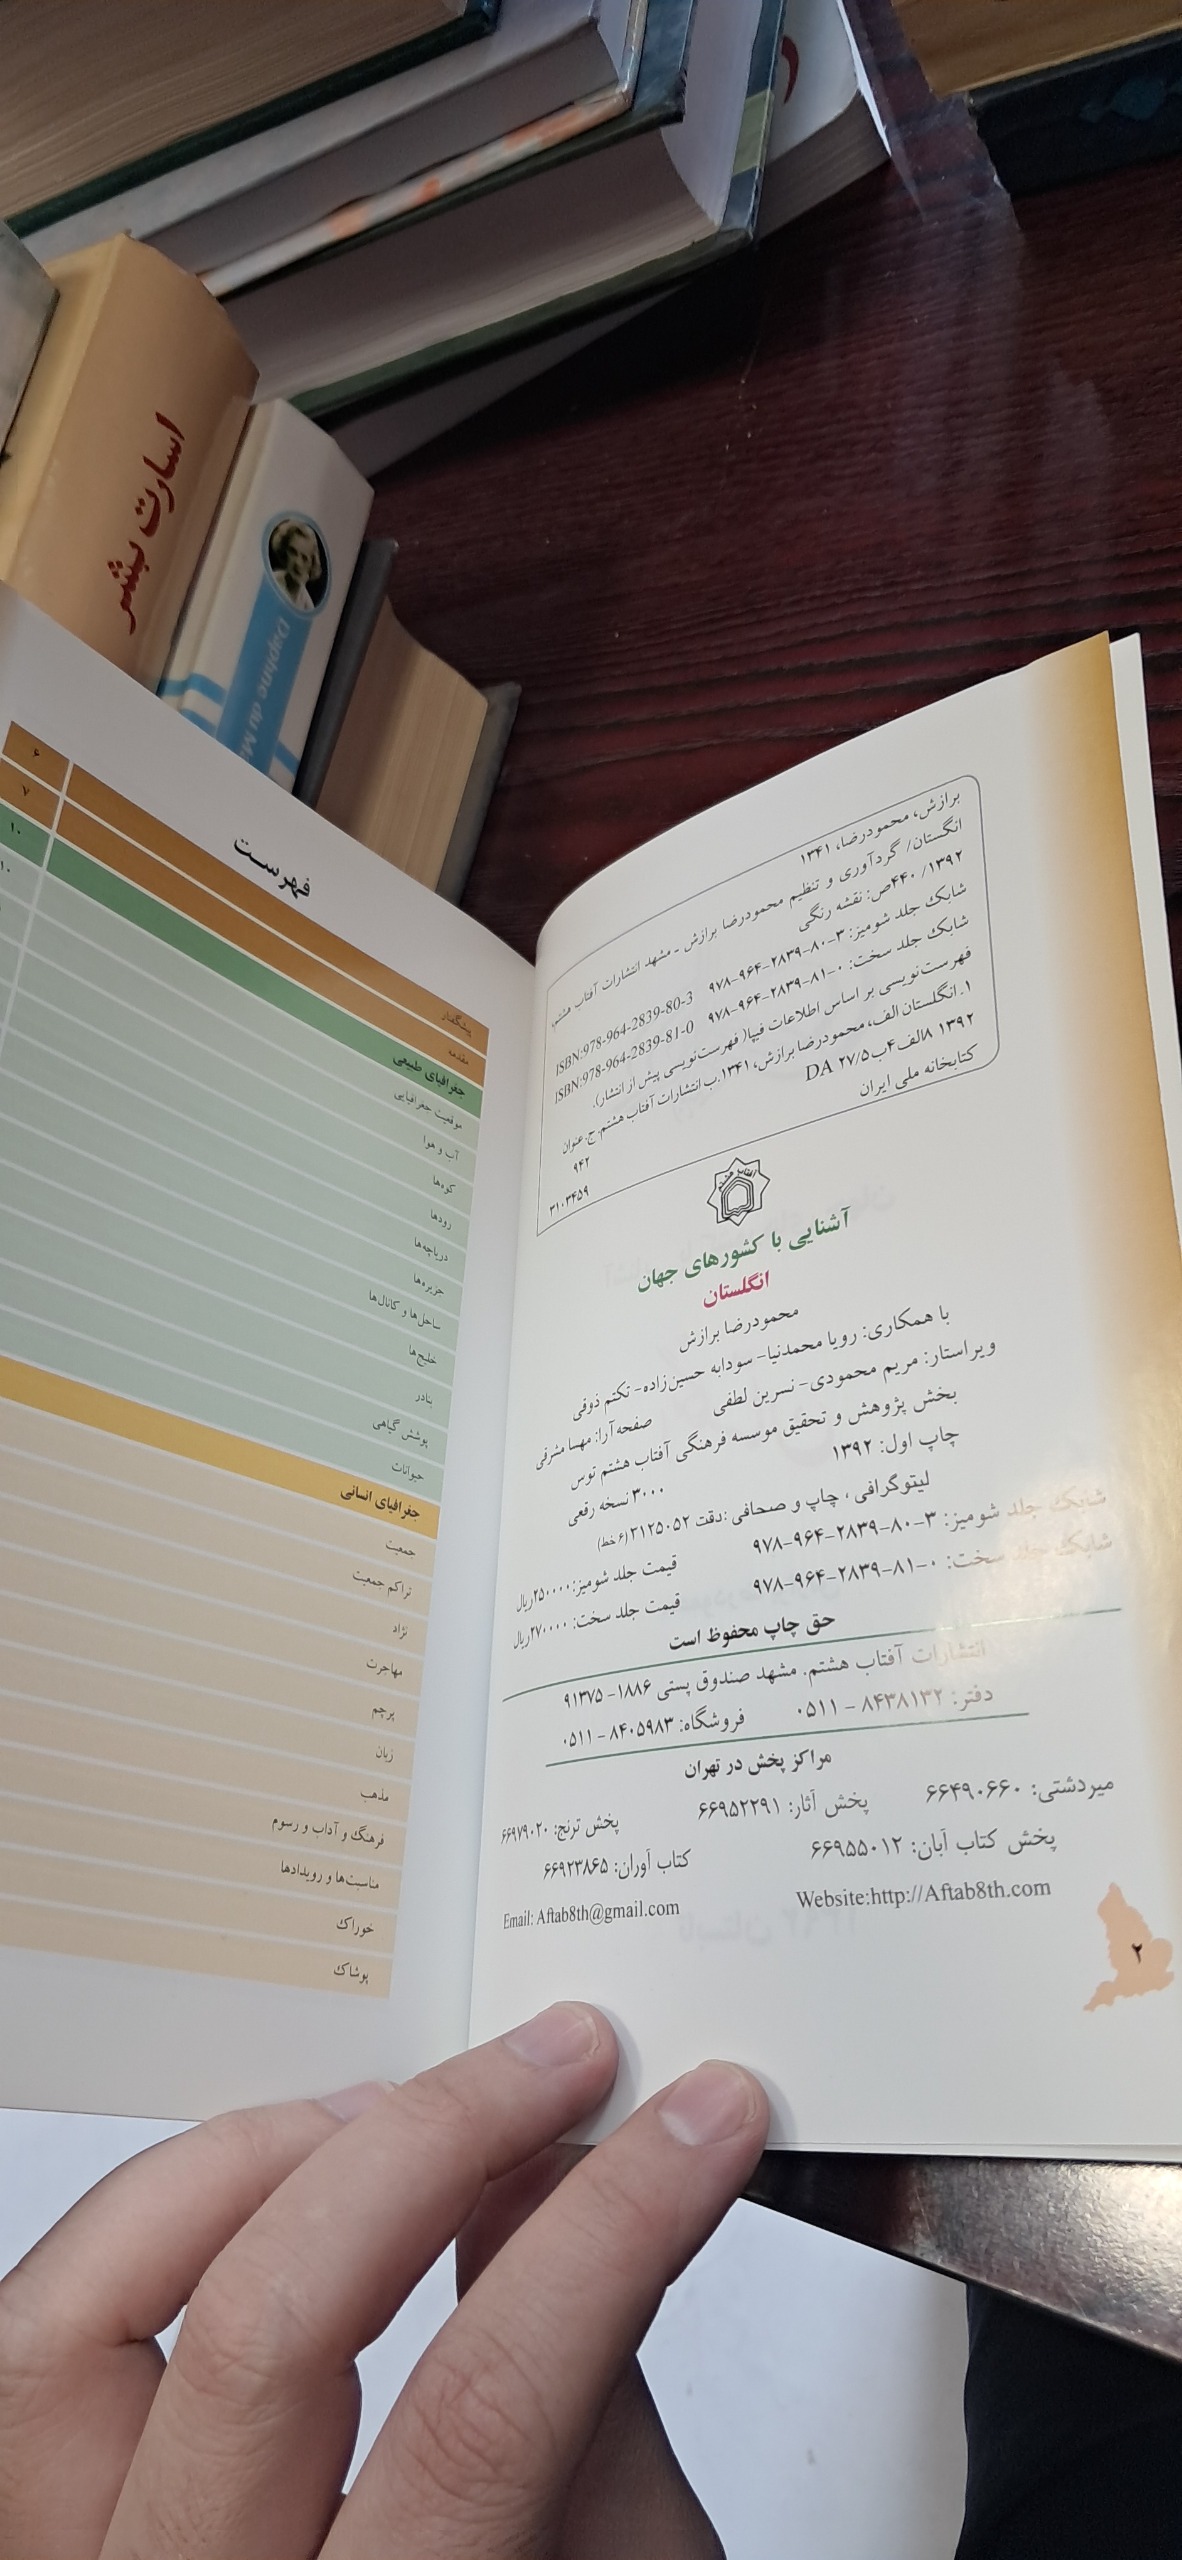 برازش، محمودرضا، ۱۳۴۱
انگستان/ گردآوری و تنظیم محمودرضا برازش - مشهد انتشارات آفتاب هشتم،
۱۳۹۲/ ۴۴۰ص: نقشه رنگی
شابک جلد شومیز: ۳-۸۰-۲۸۳۹-۹۶۴-۹۷۸ ISBN:978-964-2839-80-3
شابک جلد سخت: ۰-۸۱-۲۸۳۹-۹۶۴-۹۷۸ ISBN:978-964-2839-81-0
فهرست‌نویسی بر اساس اطلاعات فیپا( فهرست‌نویسی پیش از انتشار).
۱. انگلستان الف، محمودرضا برازش، ۱۳۴۱. ب. انتشارات آفتاب هشتم. ج. عنوان
۱۳۹۲ ۸الف۴ب/۲۷/۵ DA ۹۴۲
کتابخانه ملی ایران ۳۱۰۳۴۵۹
آشنایی با کشورهای جهان
انگلستان
محمودرضا برازش
با همکاری: رویا محمدنیا- سودابه حسین‌زاده- تکتم ذوقی
ویراستار: مریم محمودی- نسرین لطفی صفحه آرا: مهسا مشرقی
بخش پژوهش و تحقیق موسسه فرهنگی آفتاب هشتم توس
چاپ اول: ۱۳۹۲ ۳۰۰۰ نسخه رقعی
لیتوگرافی ، چاپ و صحافی :دقت ۳۱۲۵۰۵۲(۶ خط)
شابک جلد شومیز: ۳-۸۰-۲۸۳۹-۹۶۴-۹۷۸ قیمت جلد شومیز:۲۵۰۰۰۰ریال
شابک جلد سخت: ۰-۸۱-۲۸۳۹-۹۶۴-۹۷۸ قیمت جلد سخت: ۲۷۰۰۰۰ریال
حق چاپ محفوظ است
انتشارات آفتاب هشتم. مشهد صندوق پستی ۱۸۸۶- ۹۱۳۷۵
دفتر: ۸۴۳۸۱۳۲ – ۰۵۱۱ فروشگاه: ۸۴۰۵۹۸۳ – ۰۵۱۱
مراکز پخش در تهران
میردشتی: ۶۶۴۹۰۶۶۰ پخش آثار: ۶۶۹۵۲۲۹۱ پخش ترنج: ۶۶۹۷۹۰۲۰
پخش کتاب آبان: ۶۶۹۵۵۰۱۲ کتاب آوران: ۶۶۹۲۳۸۶۵
Website:http://Aftab8th.com Email: Aftab8th@gmail.com
۲
فهرست
پیشگفتار ۶
مقدمه ۷
جغرافیای طبیعی ۱۰
موقعیت جغرافیایی ۱۰
آب و هوا
کوه‌ها
رودها
دریاچه‌ها
جزیره‌ها
ساحل‌ها و کانال‌ها
خلیج‌ها
بنادر
پوشش گیاهی
حیوانات
جغرافیای انسانی
جمعیت
تراکم جمعیت
نژاد
مهاجرت
پرچم
زبان
مذهب
فرهنگ و آداب و رسوم
مناسبت‌ها و رویدادها
خوراک
پوشاک
اسارت بشر
Daphne du M